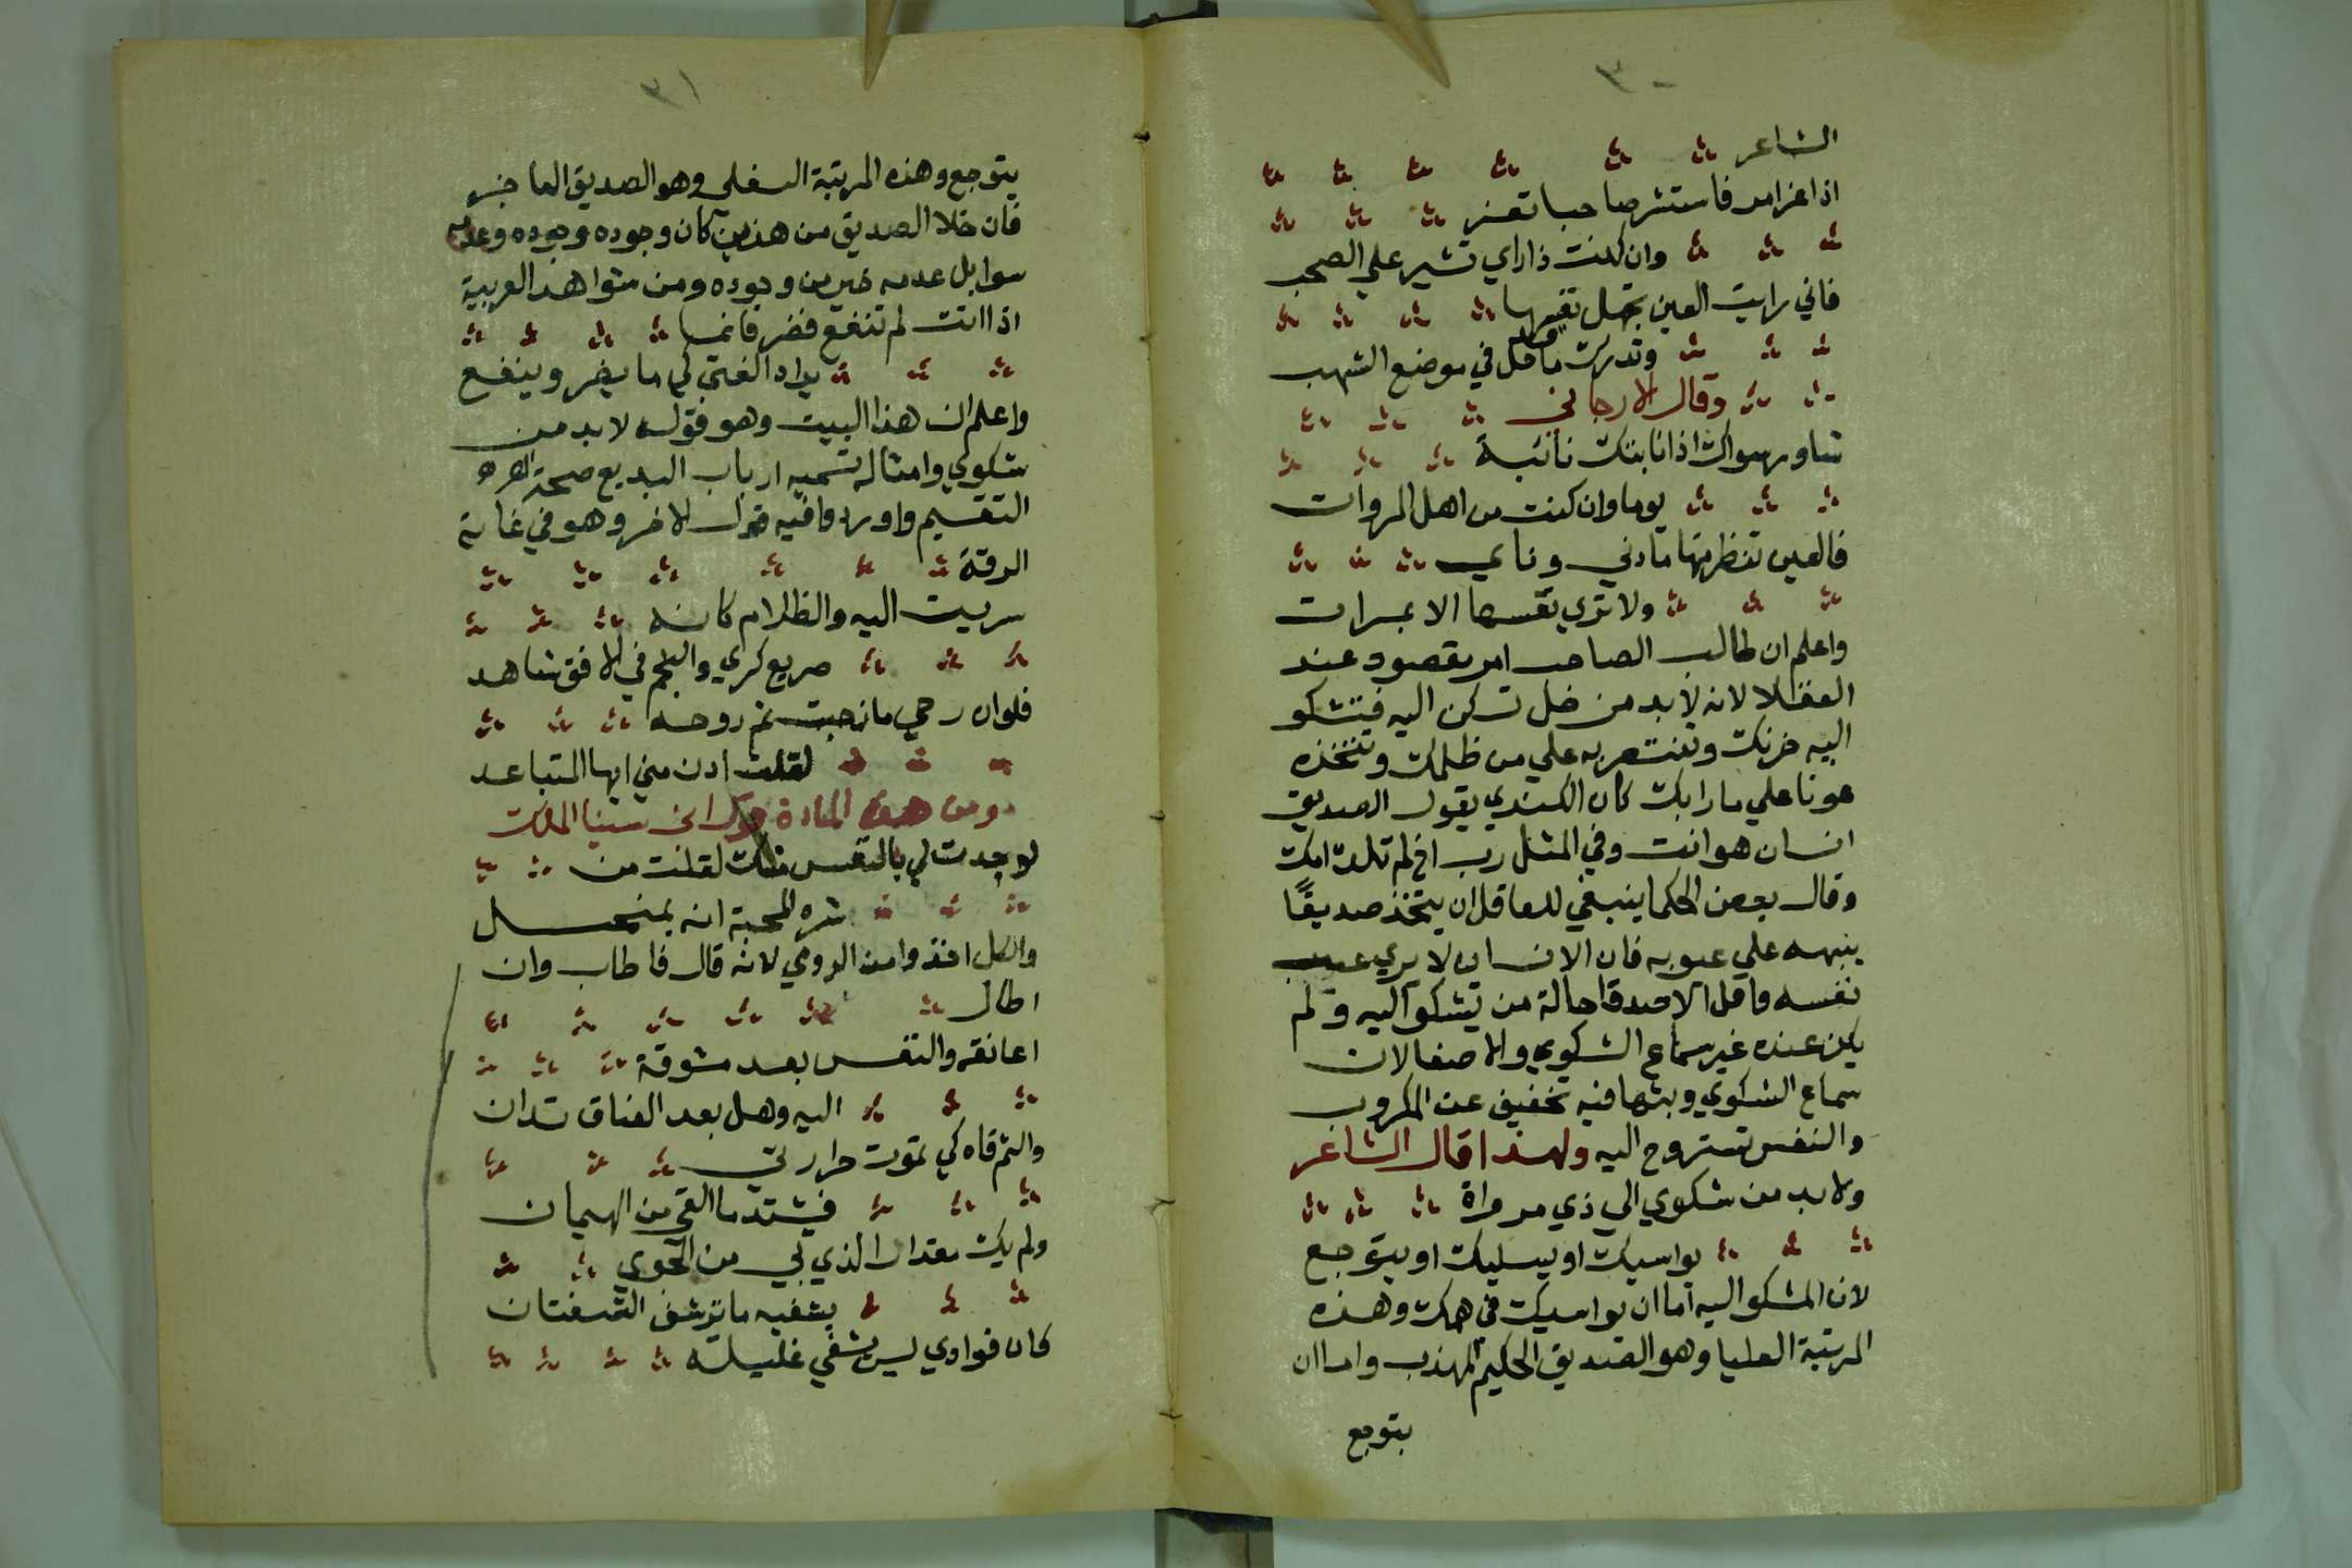 ٣٠
الشاعر
اذا عز امر فاستشر صاحبا تعز
وان كنت ذا راي تشير علي الصحب
فاني رايت العين تجهل نفسها
وتدرك ما قد حل في موضع الشهب
وقال الارجاني
شاور سواك اذا نابتك نائبة
يوما وان كنت من اهل المروات
فالعين تنظر منها ما دني وناي
ولا تري نفسها الا بمرات
واعلم ان طالب الصاحب امر مقصود عند
العقلا لانه لابد من خل تسكن اليه فتشكو
اليه حزنك وتنتصر به علي من ظلمك وتتخذه
عونا علي ما رابك كان الكندي يقول الصديق
انسان هو انت وفي المثل رب اخ لم تلده امك
وقال بعض الحكما ينبغي للعاقل ان يتخذ صديقًا
ينبهه علي عيوبه فان الانسان لا يري عيب
نفسه واقل الاصدقا حالة من تشكو اليه ولم
يكن عنده غير سماع الشكوي والاصغا لان
سماع الشكوي وبثها فيه تخفيف عن المكروب
والنفس تستروح اليه ولهذا قال الشاعر
ولابد من شكوي الي ذي مرواة
يواسيك او يسليك او يتوجع
لان المشكو اليه اما ان يواسيك في همك وهذه
المرتبة العليا وهو الصديق الحكيم المهذب واما ان
يتوجع
٣١
يتوجع وهذه المرتبة السفلي وهو الصديق العاجز
فان خلا الصديق من هذين كان وجوده وجوده وعدمه
سوا بل عدمه خير من وجوده ومن شواهد العربية
اذا انت لم تنفع فضر فانما
يراد الفتي كي ما يضر وينفع
واعلم ان هذا البيت وهو قوله لابد من
شكوي وامثاله تسميه ارباب البديع صحة
التقسيم واوردوا فيه قول الاخر وهو في غاية
الرقة
سريت اليه والظلام كانه
صريع كري والنجم في الافق شاهد
فلو ان روحي مازجت ثم روحه
لقلت ادن مني ايها المتباعد
ومن هذه المادة قول ابن سينا الملك
لو جدت لي بالنفس منك لقلت من
شره المحبة انه بمنحل
والكل اخذوا من الرومي لانه قال فاطاب وان
اطال
اعانقه والنفس بعد مشوقة
اليه وهل بعد العناق تدان
والثم فاه كي تموت حرارتي
فيشتد ما القي من الهيمان
ولم يك مقدار الذي بي من الجوي
يشفيه ما ترشف الشفتان
كان فوادي ليس يشفي غليله